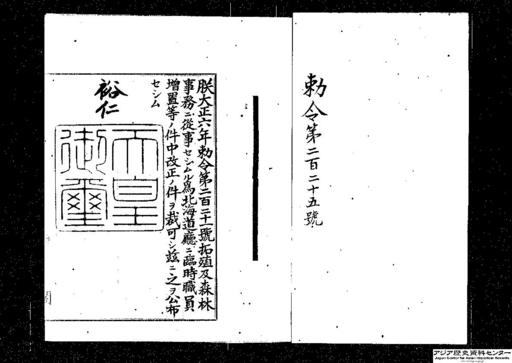 勅令第二百二十五號
朕大正六年勅令第二百二十一號拓殖及森林
事務ニ從事セシムル爲北海道廳ニ臨時職員
増置等ノ件中改正ノ件ヲ裁可シ玆ニ之ヲ公布
セシム
裕仁
天皇
御璽
アジア歴史資料センター
Japan Center for Asian Historical Records